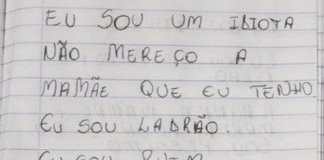 EU SOU UM IDIOTA
NÃO MEREÇO A
MAMÃE QUE EU TENHO.
EU SOU LADRÃO.
EU SOU